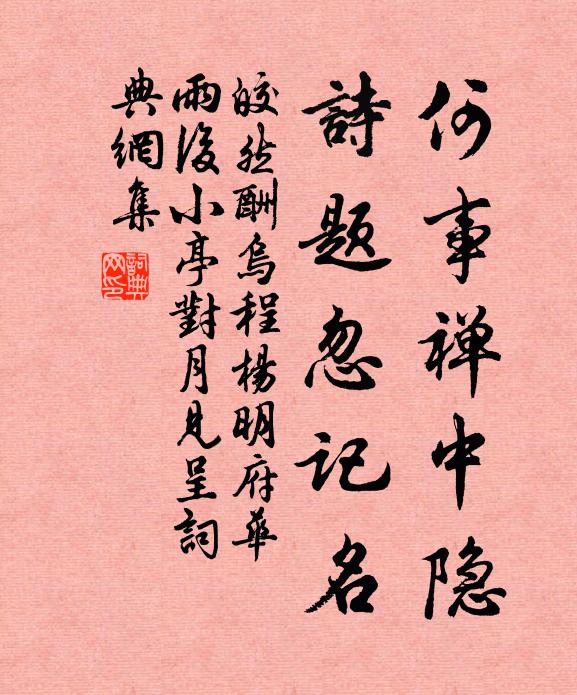 何事禅中隐
詩題忽记名
皎然酬烏程楊明府華
雨後小亭對月見呈詞
典網集
詞典
网印